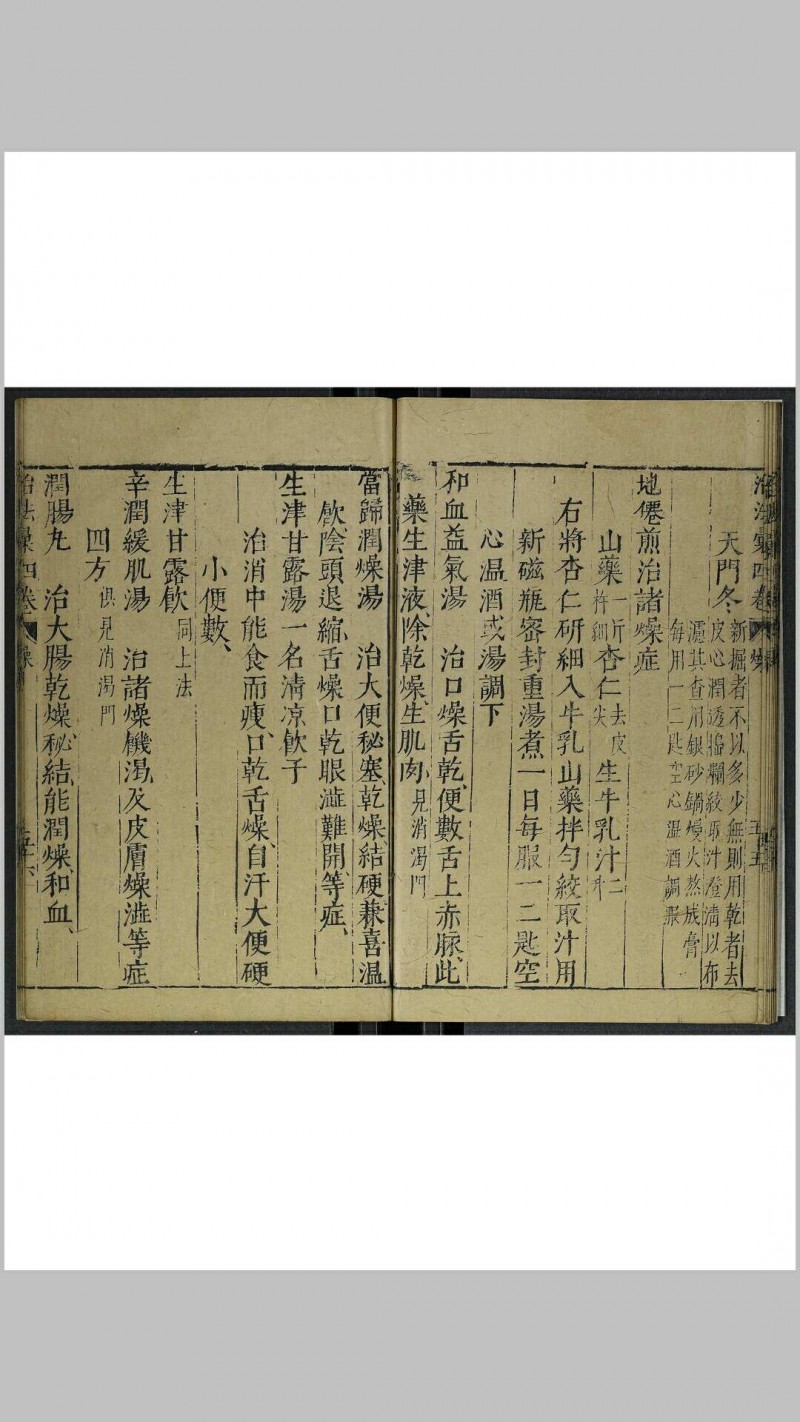 天門冬 新掘者不以多少無則用乾者去
皮心潤透搗爛絞取汁澄清以布
濾其查用銀砂鍋慢火熬成膏
每用一二匙空心溫酒調服
地僊煎治諸燥症
山藥一斤杵細杏仁去皮尖生牛乳汁二
右將杏仁研細入牛乳山藥拌勻絞取汁用
新磁瓶密封重湯煮一日每服一二匙空
心温酒或湯調下
和血益氣湯 治口燥舌乾、便數舌上赤脉、此
藥生津液、除乾燥、生肌肉、見消渴門
當歸潤燥湯 治大便秘塞、乾燥、結硬、兼喜温
飲、陰頭退縮、舌燥口乾眼澁難開、等症、
生津甘露湯一名清凉飲子
治消中能食而瘦、口乾舌燥、自汗大便硬
小便數、
生津甘露飲同上法
辛潤緩肌湯 治諸燥饑渴、及皮膚燥澁等症
四方俱見消渴門
潤腸丸 治大腸乾燥、秘結、能潤燥、和血、